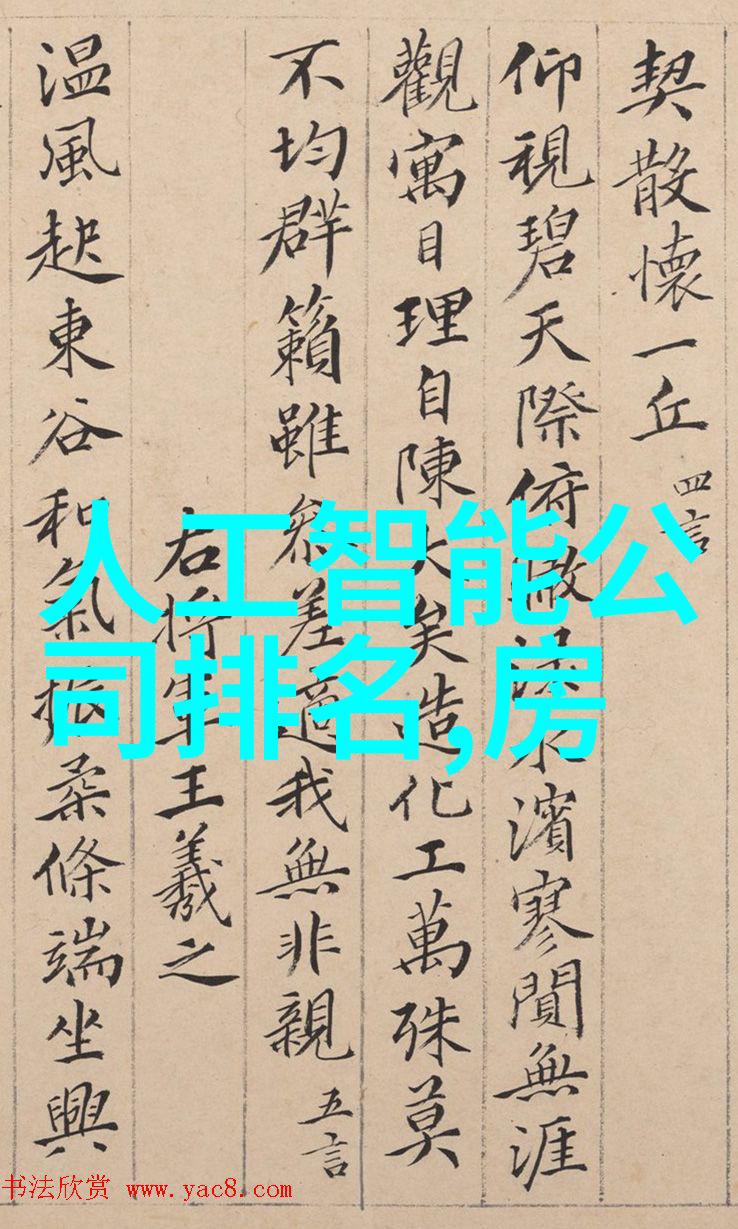 契散懷一丘 四言
仰視碧天際俯瞰水濱寥閴無涯
觀寓目理自陳大矣造化工萬殊莫
不均群籟雖參差適我無非親 五言
右將軍王羲之
温風起東谷和氣振柔條端坐興
人工智能公
司排名,房
书法欣赏 www.yac8.com